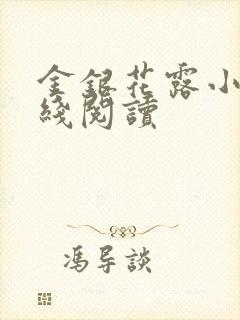 金銀花露小
綫閱讀
馮导談